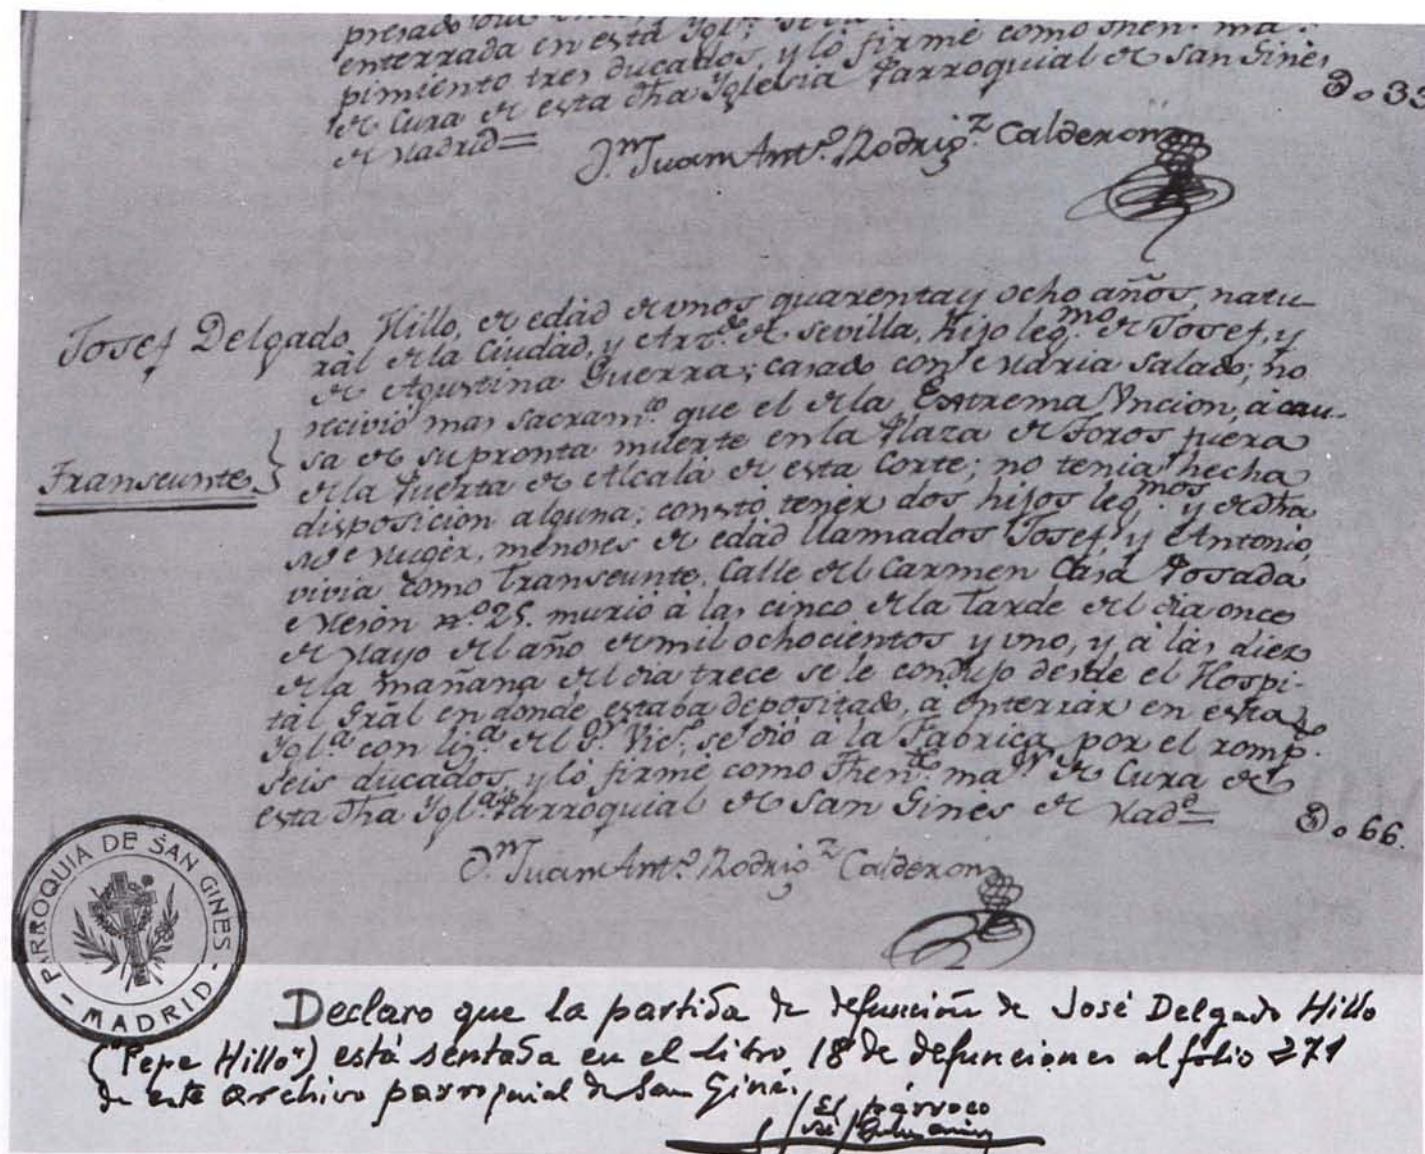 enterrada en esta Ygl.ª
pimiento tres ducados, y lo firmé como Then.
de Cura de esta dha Yglesia Parroquial de San Ginés
de Madrid=
D. 33
D.ⁿ Juan Ant.º Rodrig.ᶻ Calderon
Josef Delgado Hillo, de edad de unos quarenta y ocho años, natu-
ral de la Ciudad, y Arz.do de Sevilla, hijo leg.mo de Josef, y
de Agustina Guerra; casado con Maria Salado; no
recivió mas Sacram.to que el de la Extrema Uncion, á cau-
Transeunte
sa de su pronta muerte en la Plaza de Toros fuera
de la Puerta de Alcalá de esta Corte; no tenia hecha
disposicion alguna; constó tener dos hijos leg.mos y de dha
su Muger, menores de edad llamados Josef, y Antonio,
vivia como Transeunte, Calle del Carmen Casa Posada
Meson n.º 25. murió á las cinco de la tarde del dia once
de Mayo del año de mil ochocientos y uno, y á las diez
de la mañana del dia trece se le condujo desde el Hospi-
tál Grál en donde estaba depositado, á enterrar en esta
Ygl.ª con liz.ª del S.r Vic.º, se dió á la Fabrica por el romp.to
seis ducados, y lo firmé como Then.te ma.or de Cura de
esta dha Ygl.ª Parroquial de San Ginés de Mad.d=
D. 66.
D.ⁿ Juan Ant.º Rodrig.ᶻ Calderon
PARROQUIA DE SAN GINES - MADRID -
Declaro que la partida de defunción de José Delgado Hillo
("Pepe Hillo") está sentada en el libro 18 de defunciones al folio 271
de este archivo parroquial de San Ginés.
El párroco